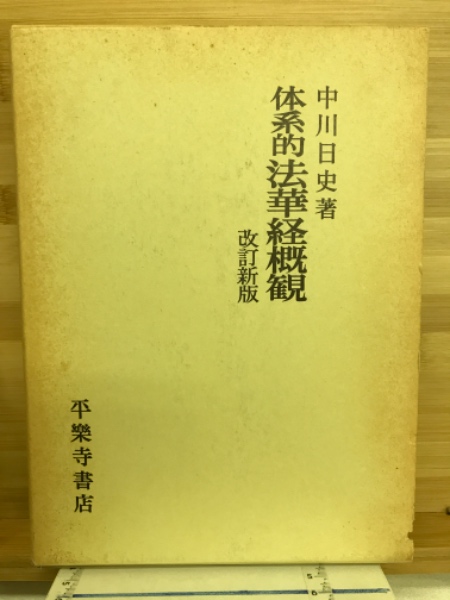 中川日史著
体系的法華経概観
改訂新版
平樂寺書店